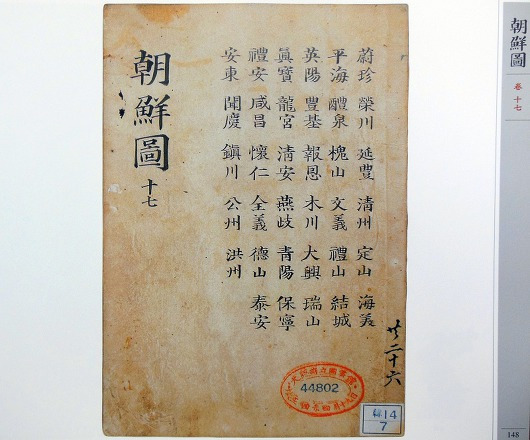 朝鮮圖
卷十七
蔚珍 榮川 延豊 清州 定山 海美
平海 醴泉 槐山 文義 禮山 結城
英陽 豊基 報恩 木川 大興 瑞山
眞寶 龍宮 清安 燕歧 青陽 保寧
禮安 咸昌 懷仁 全義 德山 泰安
安東 聞慶 鎭川 公州 洪州
朝鮮圖 十七
共二十六
大阪府立圖書館
44802
14
7
148